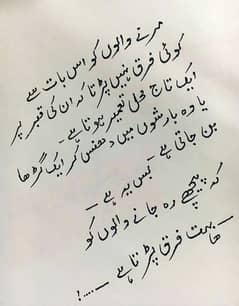 مرنے والوں کو اس بات سے
کوئی فرق نہیں پڑتا کہ ان کی قبر پر
ایک تاج محل تعمیر ہوتا ہے۔
یا وہ بارشوں میں دھنس کر ایک گڑھا
بن جاتی ہے۔ بس یہ ہے۔
کہ پیچھے رہ جانے والوں کو
بہت فرق پڑتا ہے ۔....!